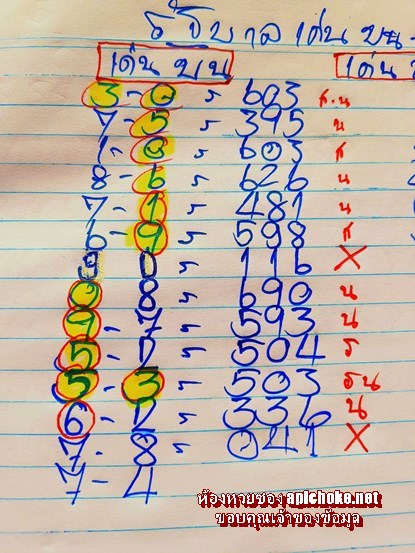 รัฐบาล เด่น บน
เด่น บน เด่น
3 - 0 ร 603 ส.น
7 - 5 ร 395 น
1 - 0 ร 603 ส
8 - 6 ร 626 น
7 - 1 ร 481 น
6 - 9 ร 598 ส
9 0 ร 116 X
0 8 ร 690 น
9 - 7 ร 593 น
5 - 1 ร 504 ร
5 - 3 ร 503 รน
6 - 1 ร 336 น
7 - 8 ร 041 X
7 - 4
ห้องหวยซอง apichoke.net
ขอบคุณเจ้าของข้อมูล